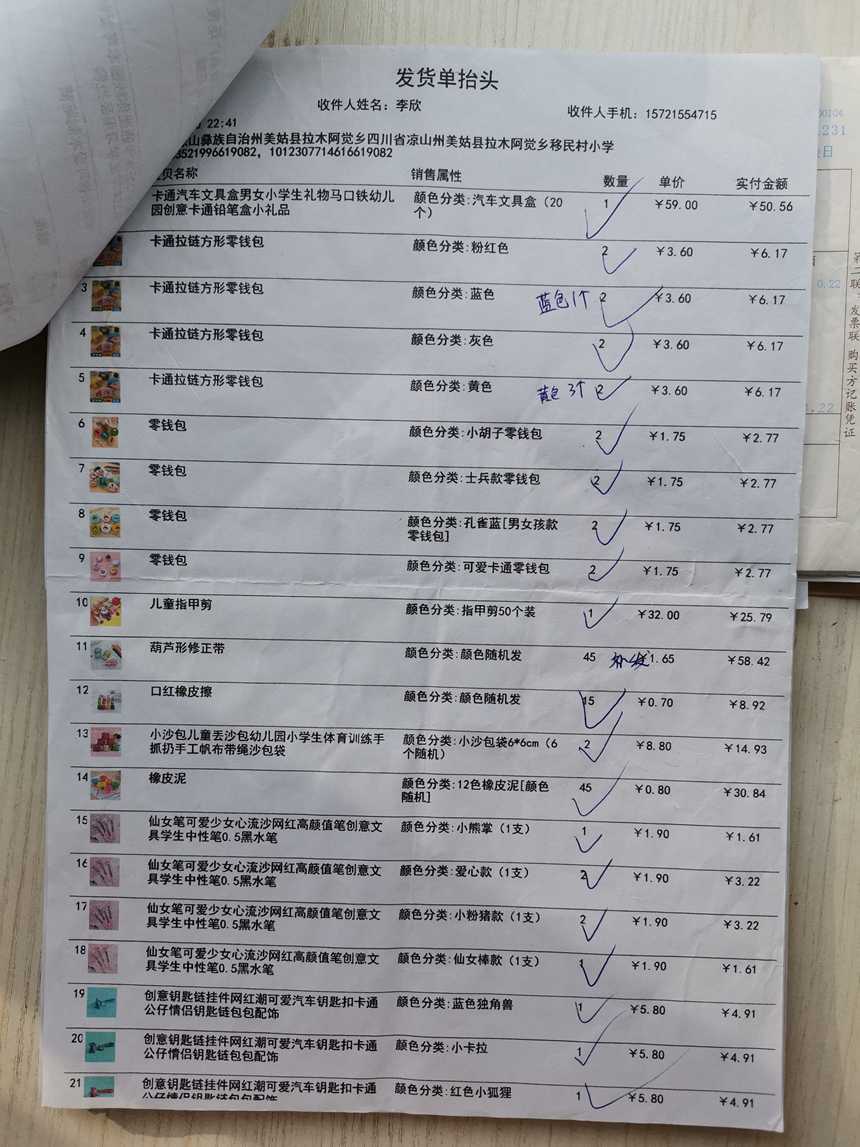 发货单抬头
收件人姓名：李欣
收件人手机：15721554715
22:41
山彝族自治州美姑县拉木阿觉乡四川省凉山州美姑县拉木阿觉乡移民村小学
3521996619082，1012307714616619082
名称 销售属性 数量 单价 实付金额
卡通汽车文具盒男女小学生礼物马口铁幼儿 颜色分类:汽车文具盒（20 1 ￥59.00 ￥50.56
园创意卡通铅笔盒小礼品 个）
卡通拉链方形零钱包 颜色分类:粉红色 2 ￥3.60 ￥6.17
3 卡通拉链方形零钱包 颜色分类:蓝色 蓝色1个 2 ￥3.60 ￥6.17
4 卡通拉链方形零钱包 颜色分类:灰色 2 ￥3.60 ￥6.17
5 卡通拉链方形零钱包 颜色分类:黄色 黄色3个 2 ￥3.60 ￥6.17
6 零钱包 颜色分类:小胡子零钱包 2 ￥1.75 ￥2.77
7 零钱包 颜色分类:士兵款零钱包 2 ￥1.75 ￥2.77
8 零钱包 颜色分类:孔雀蓝[男女孩款 2 ￥1.75 ￥2.77
零钱包]
9 零钱包 颜色分类:可爱卡通零钱包 2 ￥1.75 ￥2.77
10 儿童指甲剪 颜色分类:指甲剪50个装 1 ￥32.00 ￥25.79
11 葫芦形修正带 颜色分类:颜色随机发 45 补发 1.65 ￥58.42
12 口红橡皮擦 颜色分类:颜色随机发 15 ￥0.70 ￥8.92
13 小沙包儿童丢沙包幼儿园小学生体育训练手 颜色分类:小沙包袋6*6cm（6 2 ￥8.80 ￥14.93
抓扔手工帆布带绳沙包袋 个随机）
14 橡皮泥 颜色分类:12色橡皮泥[颜色 45 ￥0.80 ￥30.84
随机]
15 仙女笔可爱少女心流沙网红高颜值笔创意文 颜色分类:小熊掌（1支） 1 ￥1.90 ￥1.61
具学生中性笔0.5黑水笔
16 仙女笔可爱少女心流沙网红高颜值笔创意文 颜色分类:爱心款（1支） 2 ￥1.90 ￥3.22
具学生中性笔0.5黑水笔
17 仙女笔可爱少女心流沙网红高颜值笔创意文 颜色分类:小粉猪款（1支） 2 ￥1.90 ￥3.22
具学生中性笔0.5黑水笔
18 仙女笔可爱少女心流沙网红高颜值笔创意文 颜色分类:仙女棒款（1支） 1 ￥1.90 ￥1.61
具学生中性笔0.5黑水笔
19 创意钥匙链挂件网红潮可爱汽车钥匙扣卡通 颜色分类:蓝色独角兽 1 ￥5.80 ￥4.91
公仔情侣钥匙链包包配饰
20 创意钥匙链挂件网红潮可爱汽车钥匙扣卡通 颜色分类:小卡拉 1 ￥5.80 ￥4.91
公仔情侣钥匙链包包配饰
21 创意钥匙链挂件网红潮可爱汽车钥匙扣卡通 颜色分类:红色小狐狸 1 ￥5.80 ￥4.91
公仔情侣钥匙链包包配饰
第二联 发票联 购买方记账凭证